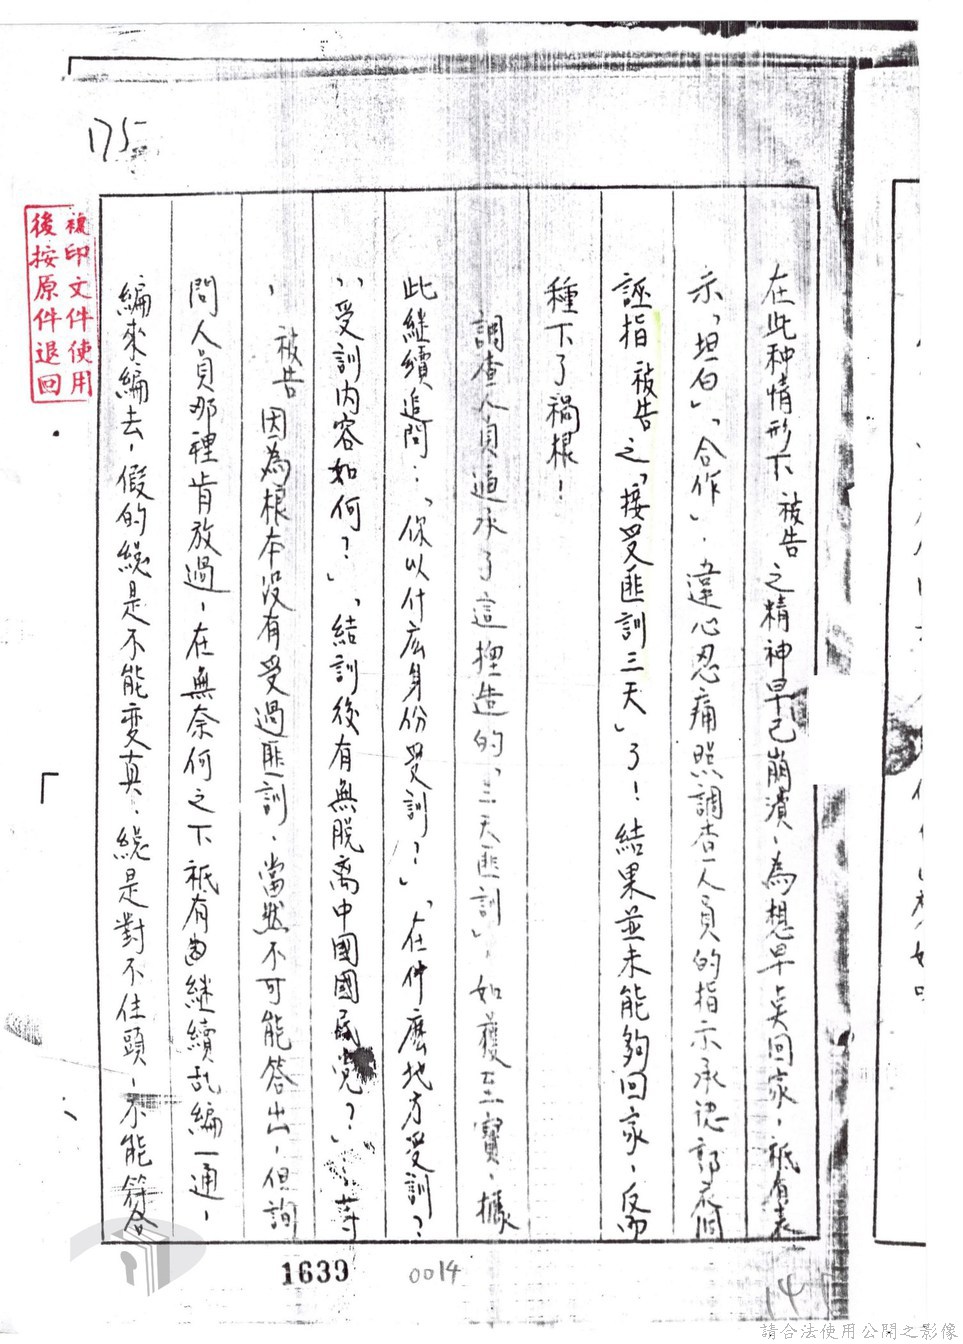 175
複印文件使用
後按原件退回
在此种情形下被告之精神早已崩潰，為想早点回家，祇有表
示「坦白」「合作」，違心忍痛照調查人員的指示承認郭衣洞
誣指被告之「接受匪訓三天」了！結果並未能夠回家，反而
種下了禍根！
調查人員逼承了這捏造的「三天匪訓」，如獲至寶，據
此継續追問：「你以什庅身份受訓？」「在什麼地方受訓？
」「受訓內容如何？」「結訓後有無脫离中國國民党？」…等
，被告因為根本没有受過匪訓，當然不可能答出，但詢
問人員那裡肯放過，在無奈何之下祇有由継續乱編一通，
編來編去，假的總是不能变真，總是對不住頭，不能符合
1639
0014
14
請合法使用公開之影像